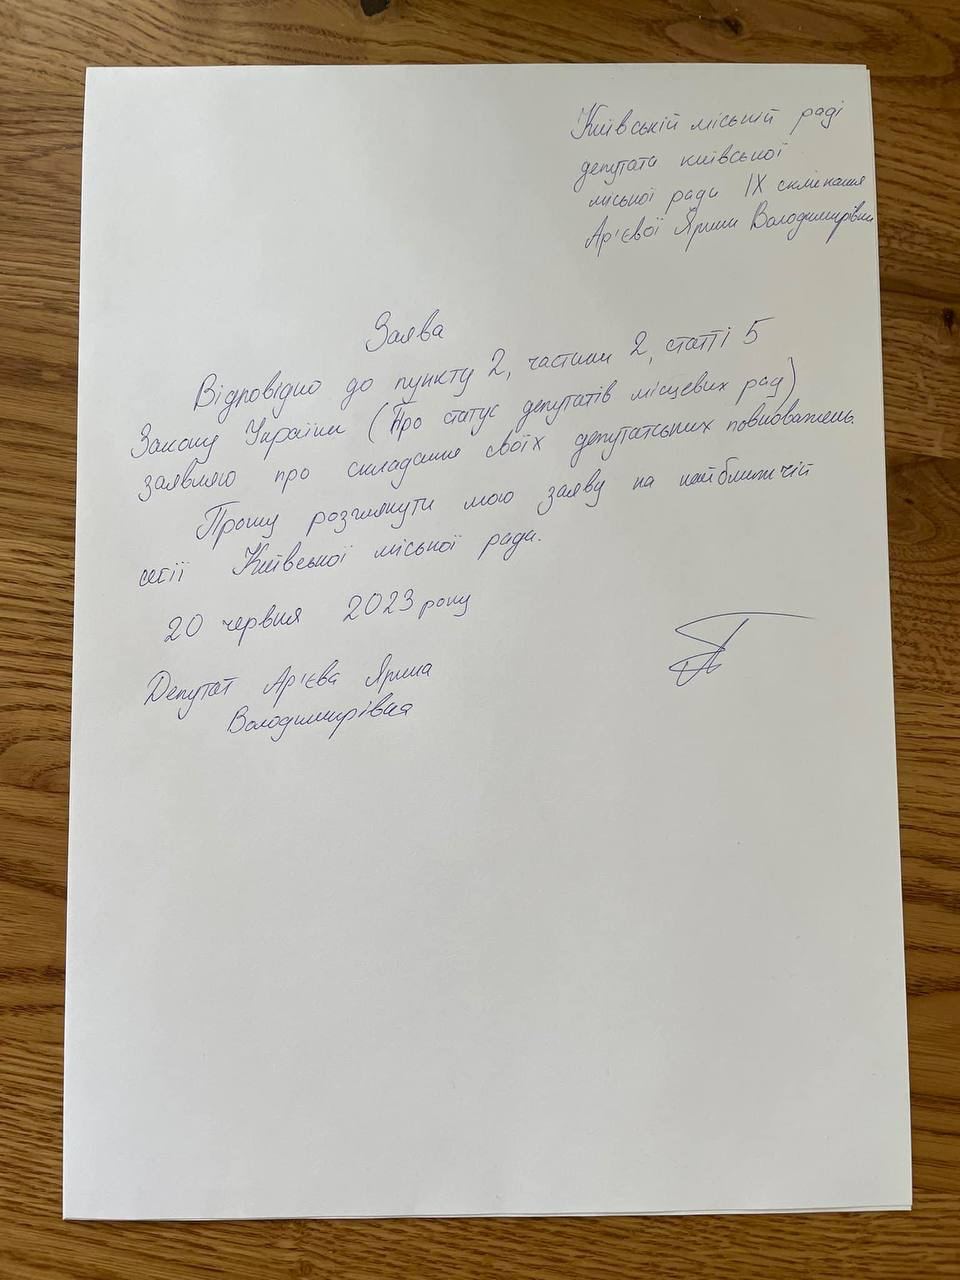 Київській міській раді
депутата київської
міської ради ІХ скликання
Ар'євої Ярини Володимирівни
Заява
Відповідно до пункту 2, частини 2, статті 5
Закону України (Про статус депутатів місцевих рад)
заявляю про складання своїх депутатських повноважень.
Прошу розглянути мою заяву на найближчій
сесії Київської міської рада.
20 червня 2023 року
Депутат Ар'єва Ярина
Володимирівна